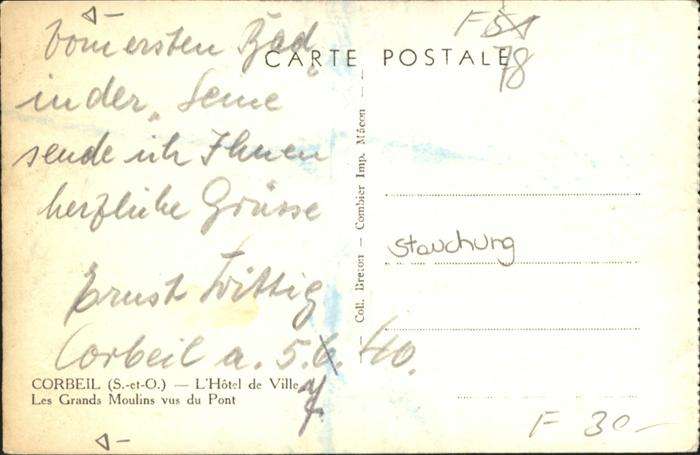 Vom ersten Bad
in der „Seine
sende ich Ihnen
herzliche Grüsse
Ernst Wittig
Corbeil a. 5.6. 40.
7
CORBEIL (S.-et-O.) — L'Hôtel de Ville
Les Grands Moulins vus du Pont
CARTE POSTALE
Coll. Breton — Combier Imp. Mâcon
F
78
Stauchung
F 30-